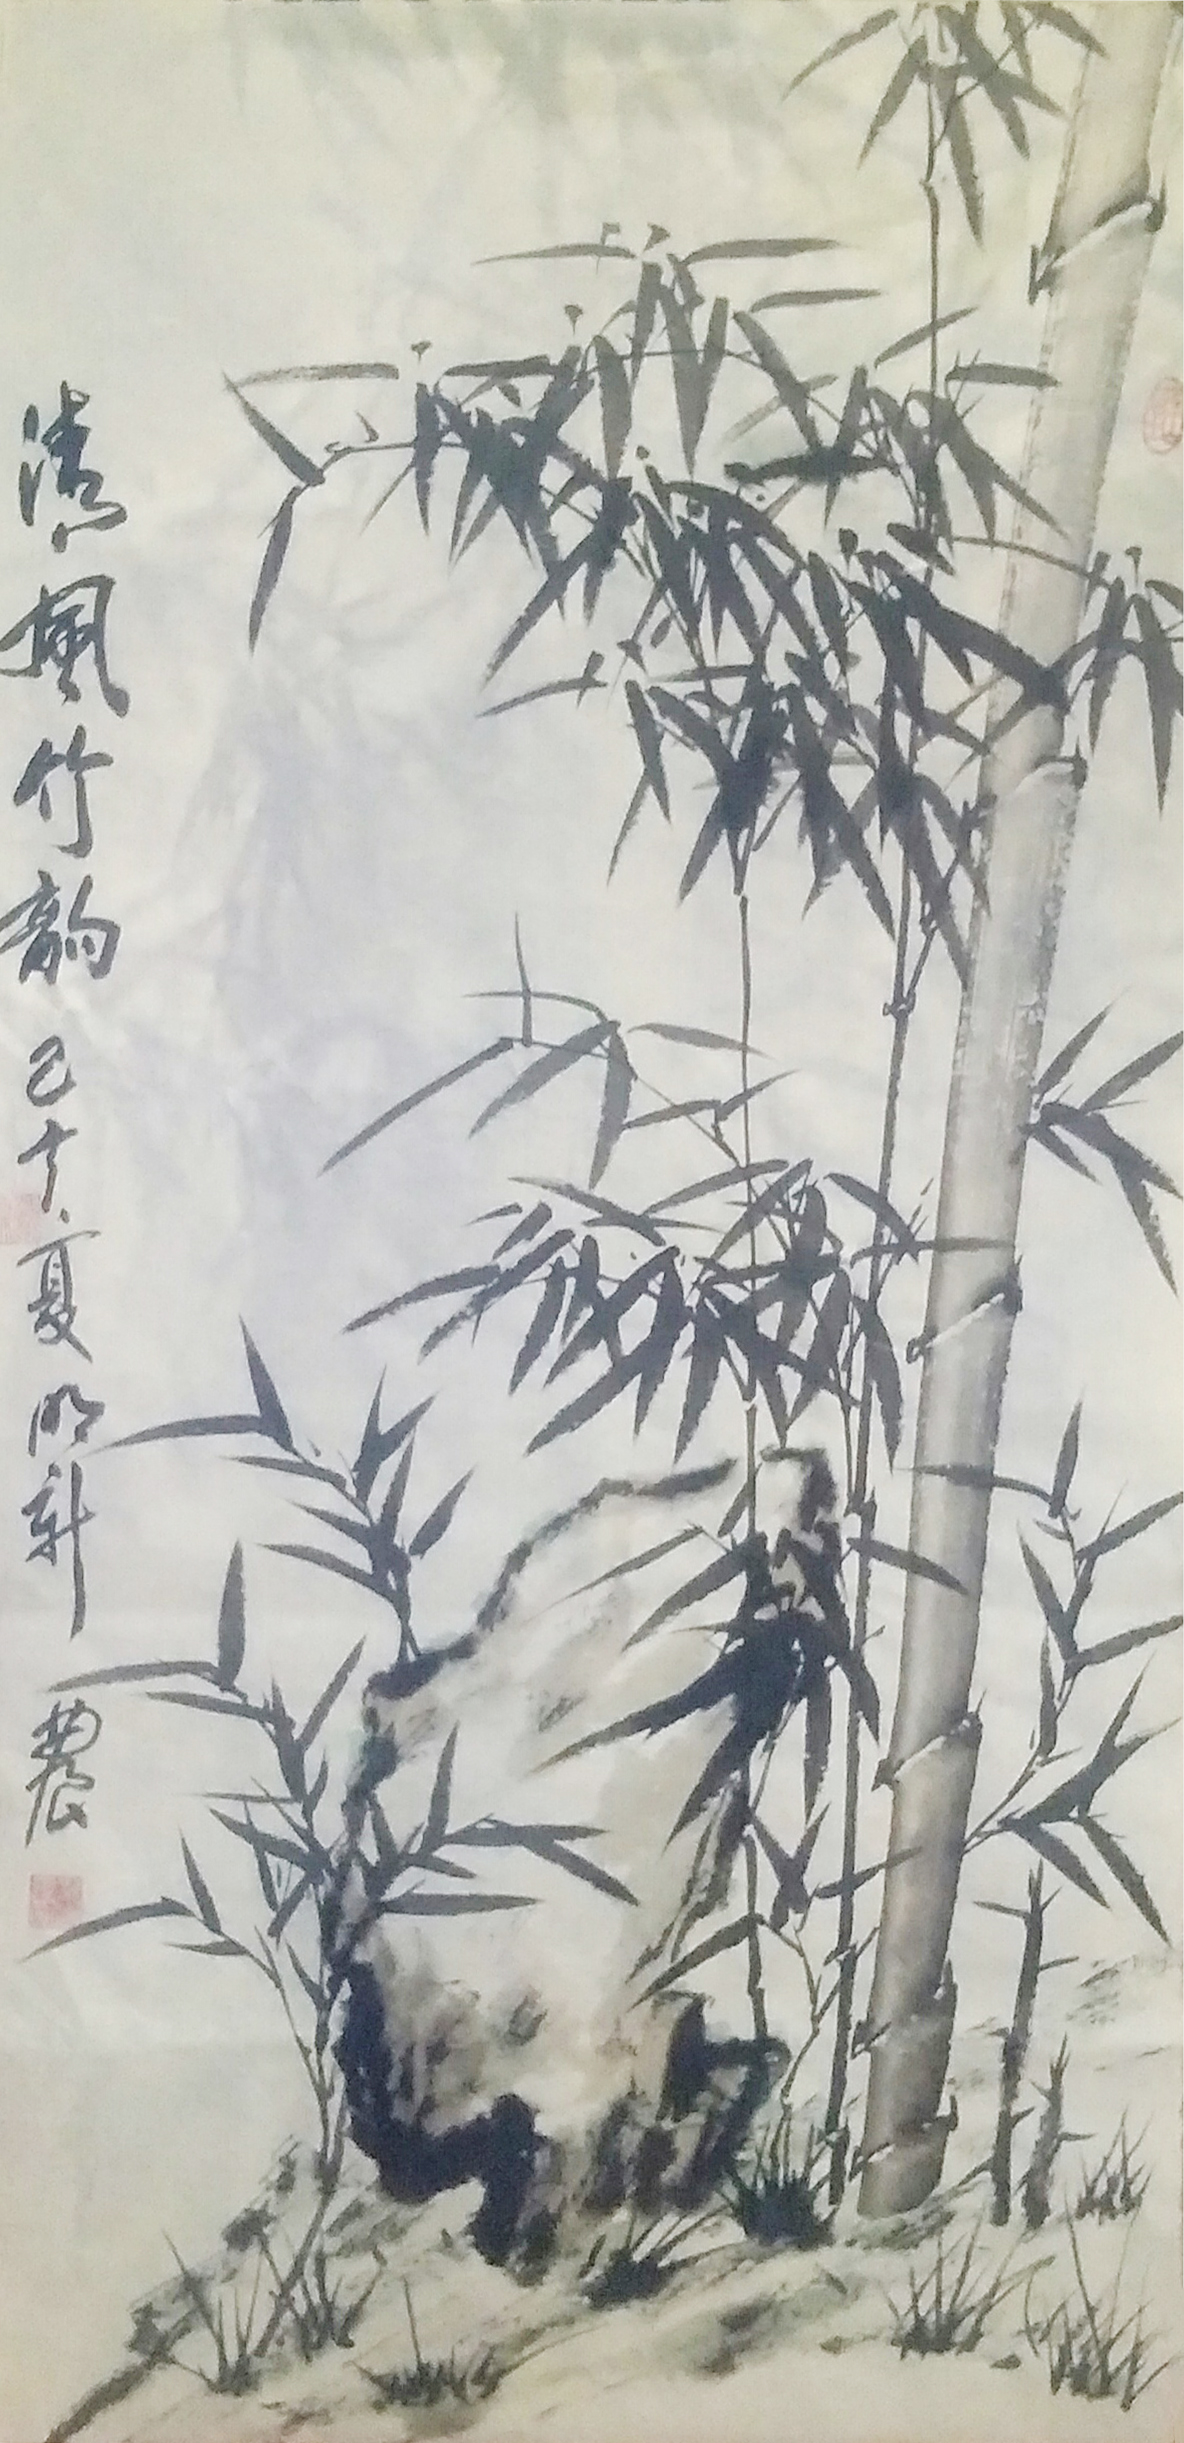 清風竹韵己亥夏明新農